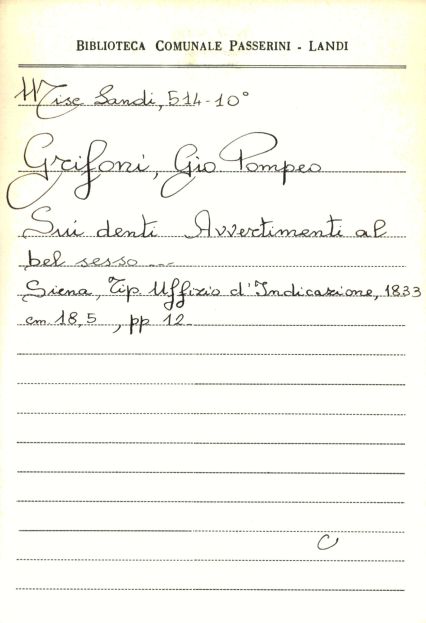 BIBLIOTECA COMUNALE PASSERINI - LANDI
Misc Landi, 514-10°
Grifoni, Gio Pompeo
Sui denti Avvertimenti al
bel sesso ...
Siena, Tip Uffizio d'Indicazione, 1833
cm 18,5 , pp 12.
C